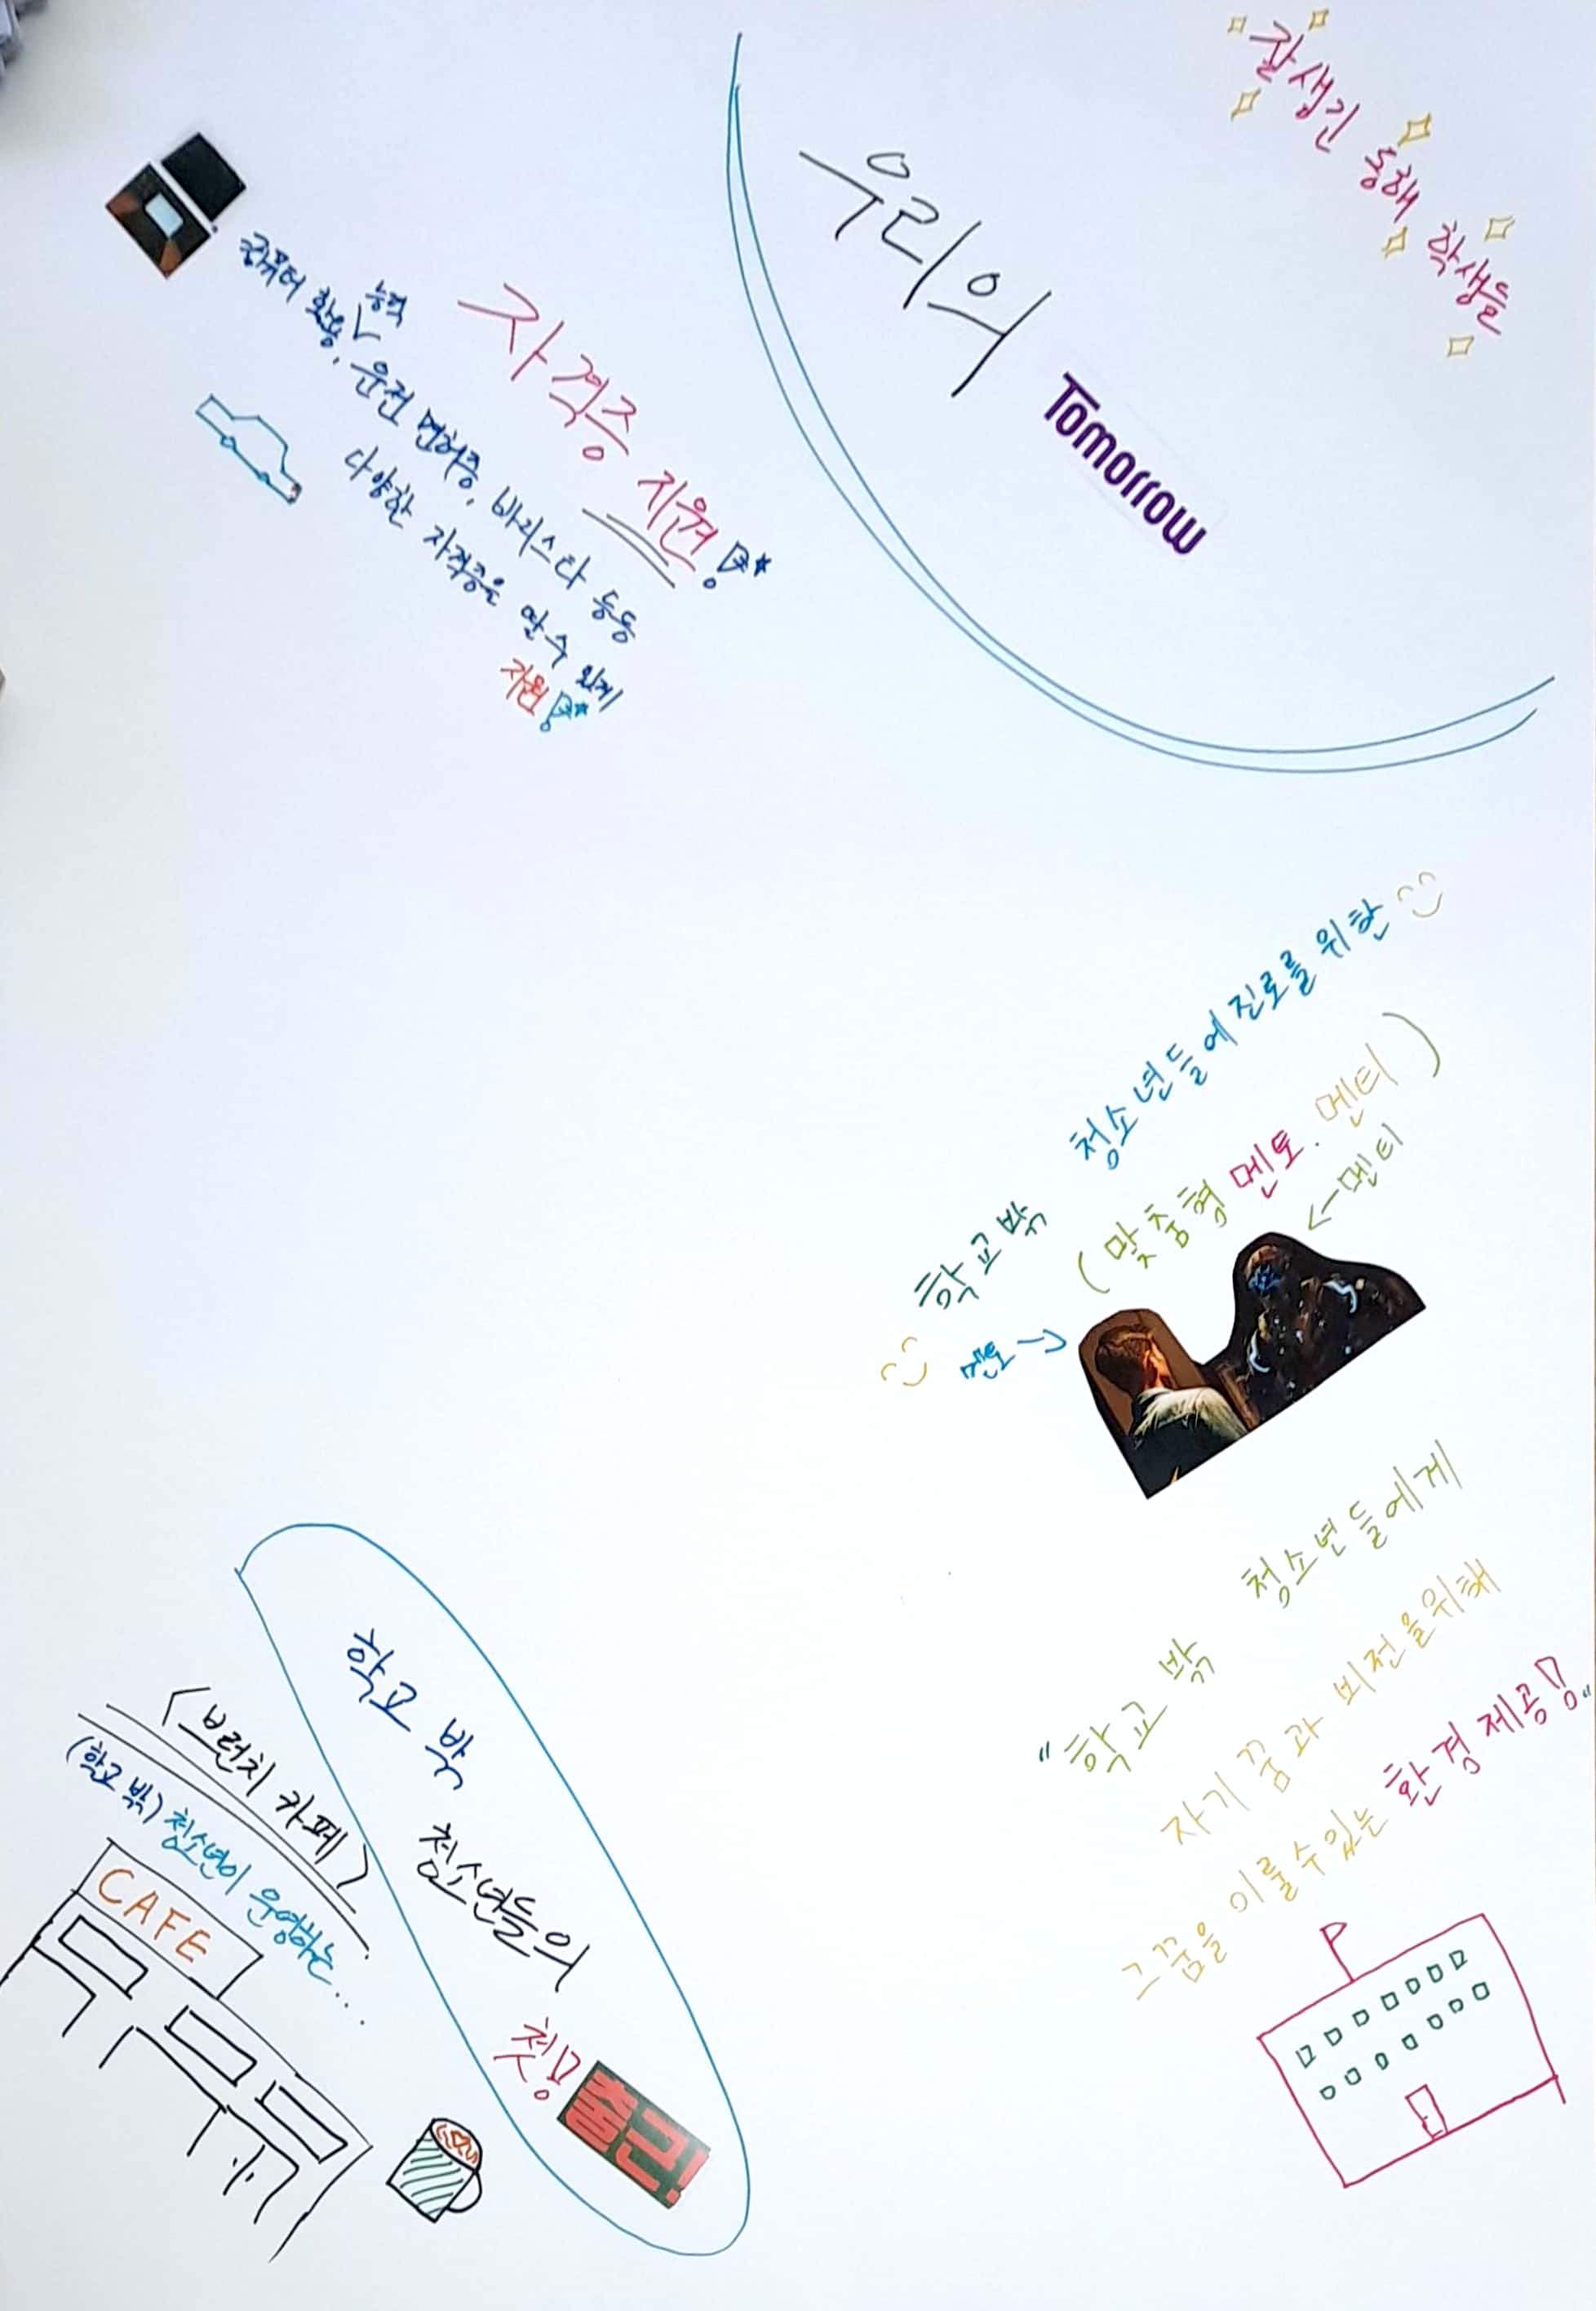 잘생긴 동해 학생들
우리의 Tomorrow
자격증 지원!
컴퓨터 활용능력, 운전 면허증, 바리스타 등등
다양한 자격증을 딸 수 있게
지원!
학교 밖 청소년들에 진로를 위한
(맞춤형 멘토. 멘티)
←멘티
멘토→
"학교 밖 청소년들에게
자기 꿈과 비전을위해
그꿈을 이룰수있는 환경제공!"
학교 밖
청소년들의
첫! 출근!
<브런치 카페>
(학교 밖) 청소년이 운영하는...
CAFE